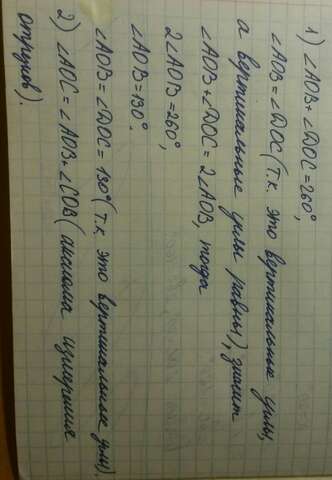 1) ∠AOB + ∠DOC = 260°,
∠AOB = ∠DOC (т.к. это вертикальные углы,
а вертикальные углы равны), значит
∠AOB + ∠DOC = 2∠AOB, тогда
2∠AOB = 260°,
∠AOB = 130°.
∠AOB = ∠DOC = 130° (т.к. это вертикальные углы).
2) ∠AOC = ∠AOB + ∠COB (аксиома измерения
отрезков).